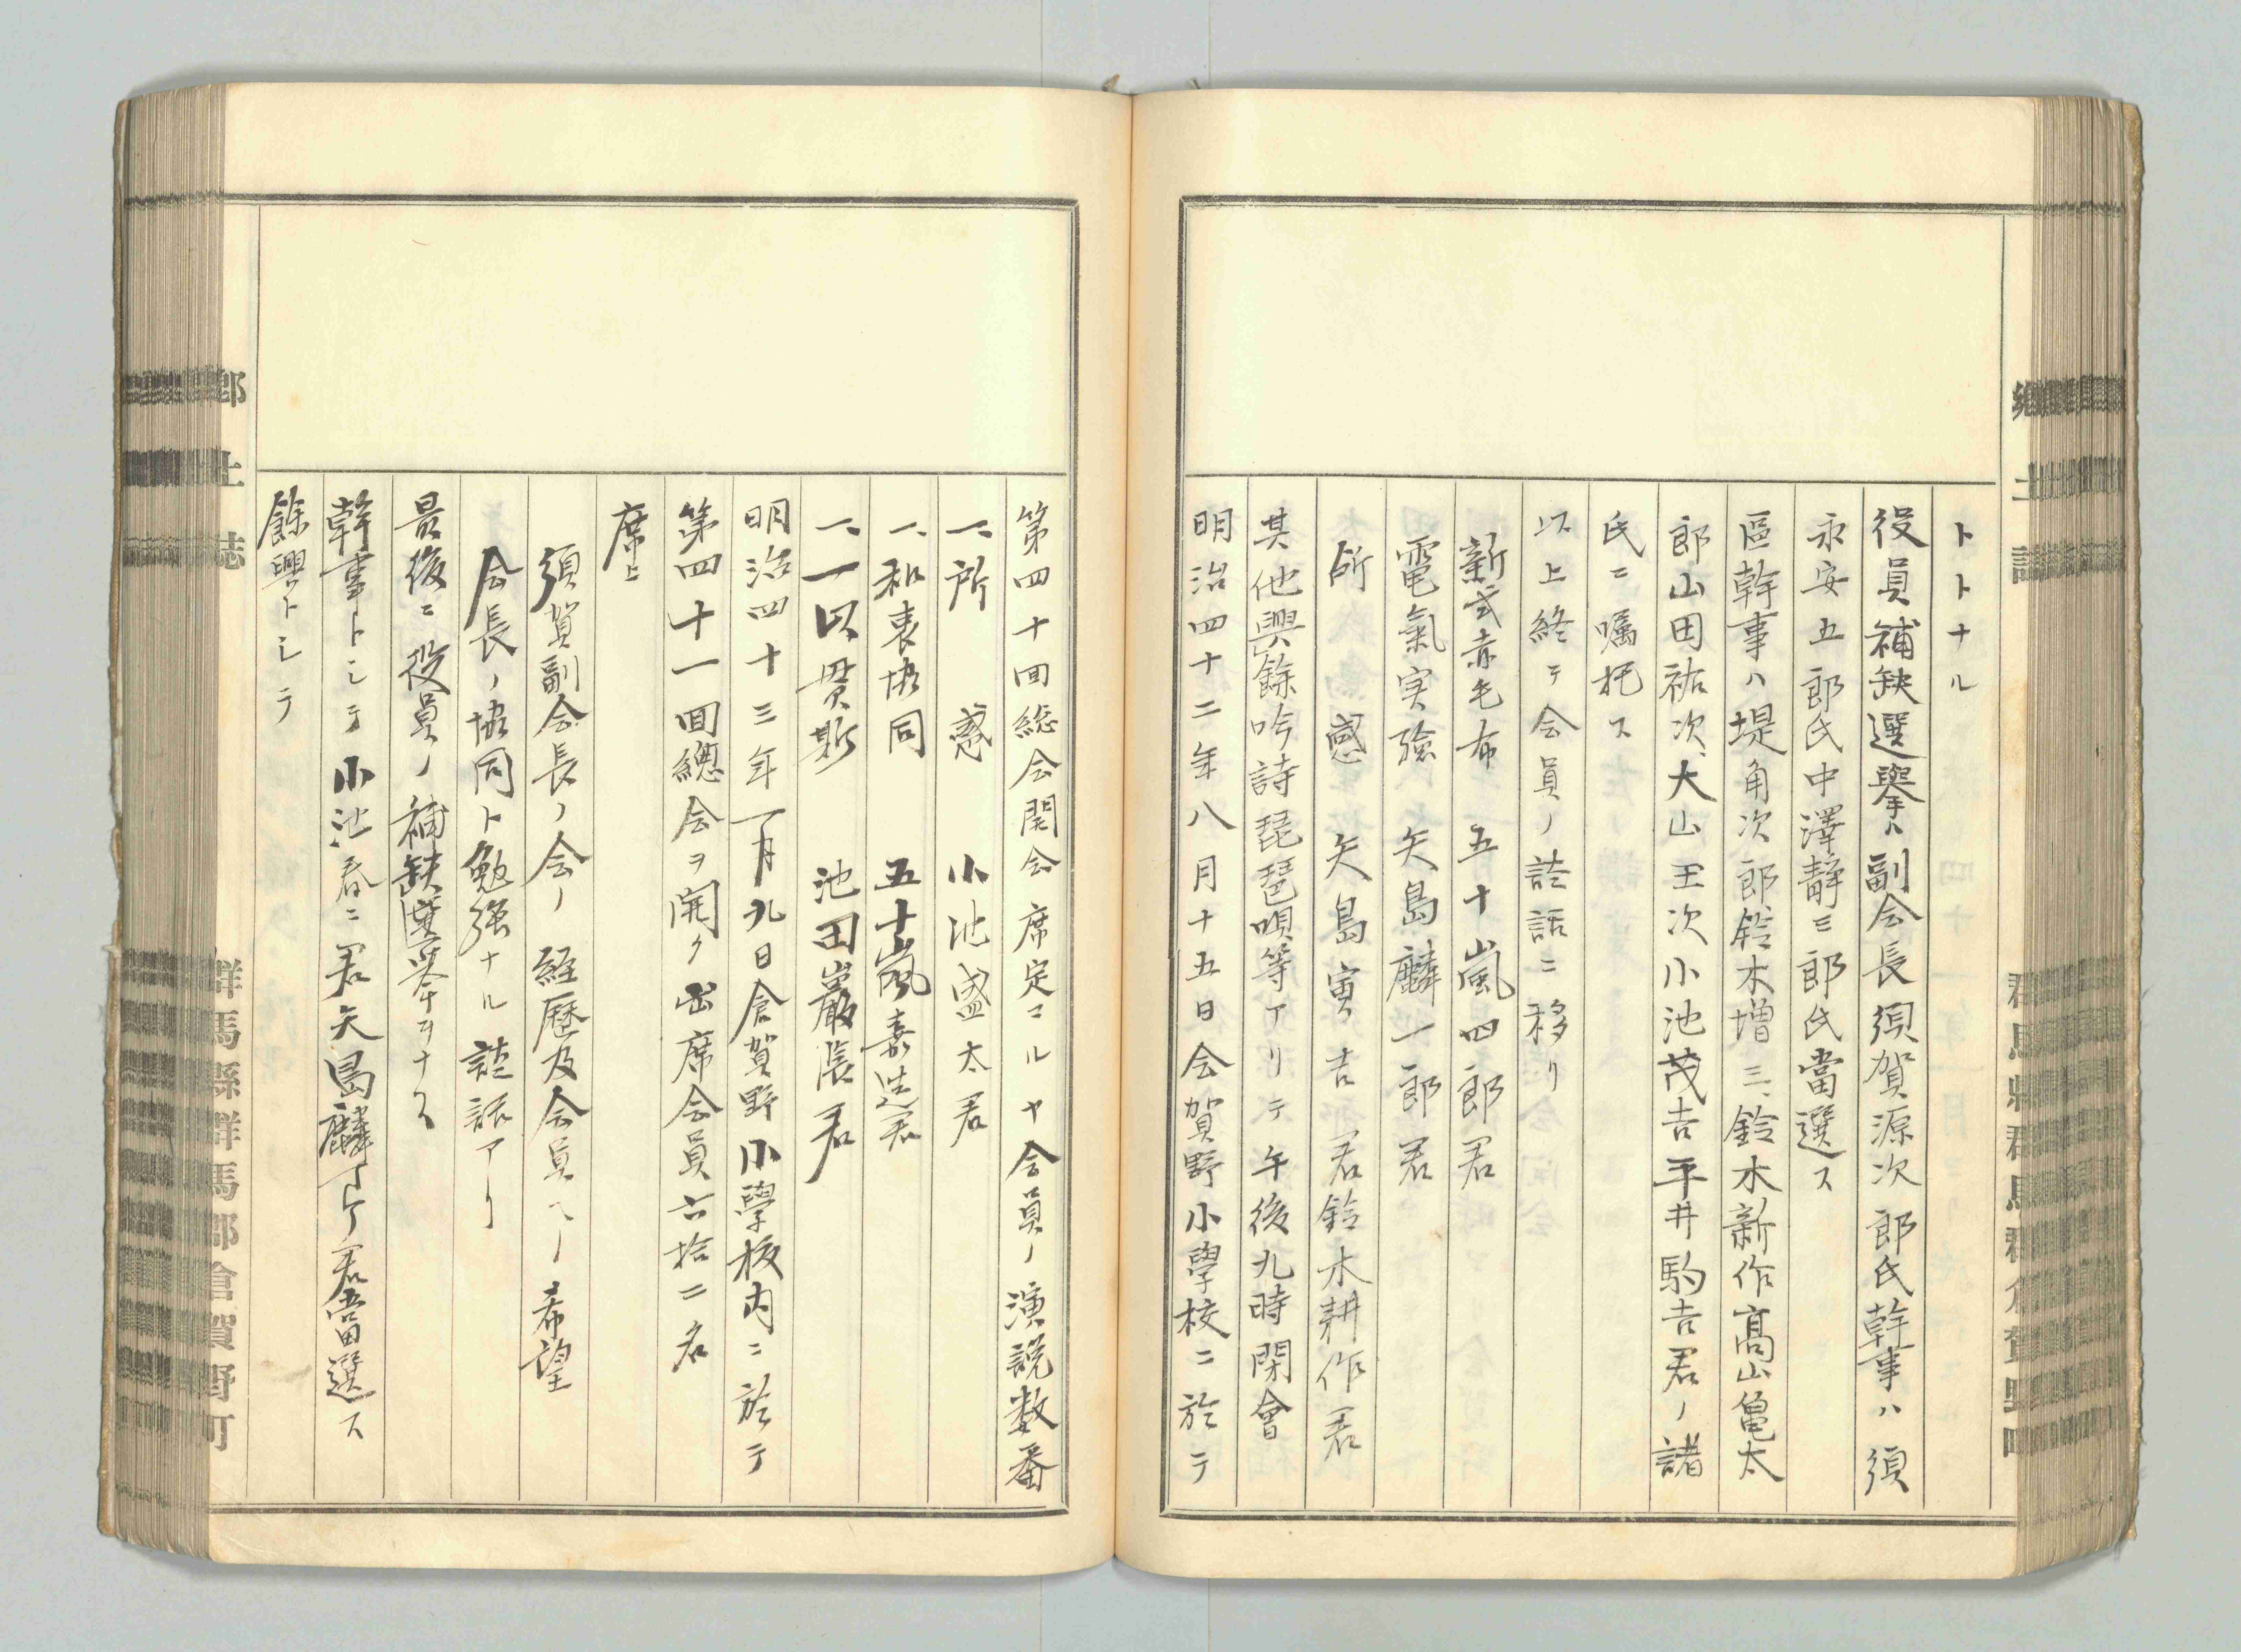 郷土誌
群馬縣群馬郡倉賀野町
トトナル
役員補缺選擧ハ副会長須賀源次郎氏幹事ハ須
永安五郎氏中澤静三郎氏當選ス
區幹事ハ堤角次郎、鈴木増三、鈴木新作髙山亀太
郎山田祐次、大山王次小池茂吉平井駒吉君ノ諸
氏ニ嘱托ス
以上終テ会員ノ談話ニ移リ
新式赤毛布 五十嵐四郎君
電氣実験 矢島麟一郎君
所感 矢島寅吉君鈴木耕作君
其他興餘吟詩琵琶唄等アリテ午後九時閉會
明治四十二年八月十五日会賀野小學校ニ於テ
第四十回総会開会席定マルヤ会員ノ演説数番
一、所感 小池盛太君
一、和衷協同 五十嵐嘉造君
一、一以貫斯 池田巖漲君
明治四十三年一月九日倉賀野小學校内ニ於テ
第四十一回總会ヲ開ク出席会員六拾二名
席上
須賀副会長ノ会ノ経歴及会員ヘノ希望
会長ノ協同ト勉強ナル談話アリ
最後ニ役員ノ補缺選挙ヲナス
幹事トシテ小池春二君矢島麟 君當選ス
餘興トシテ
郷土誌
群馬縣群馬郡倉賀野町